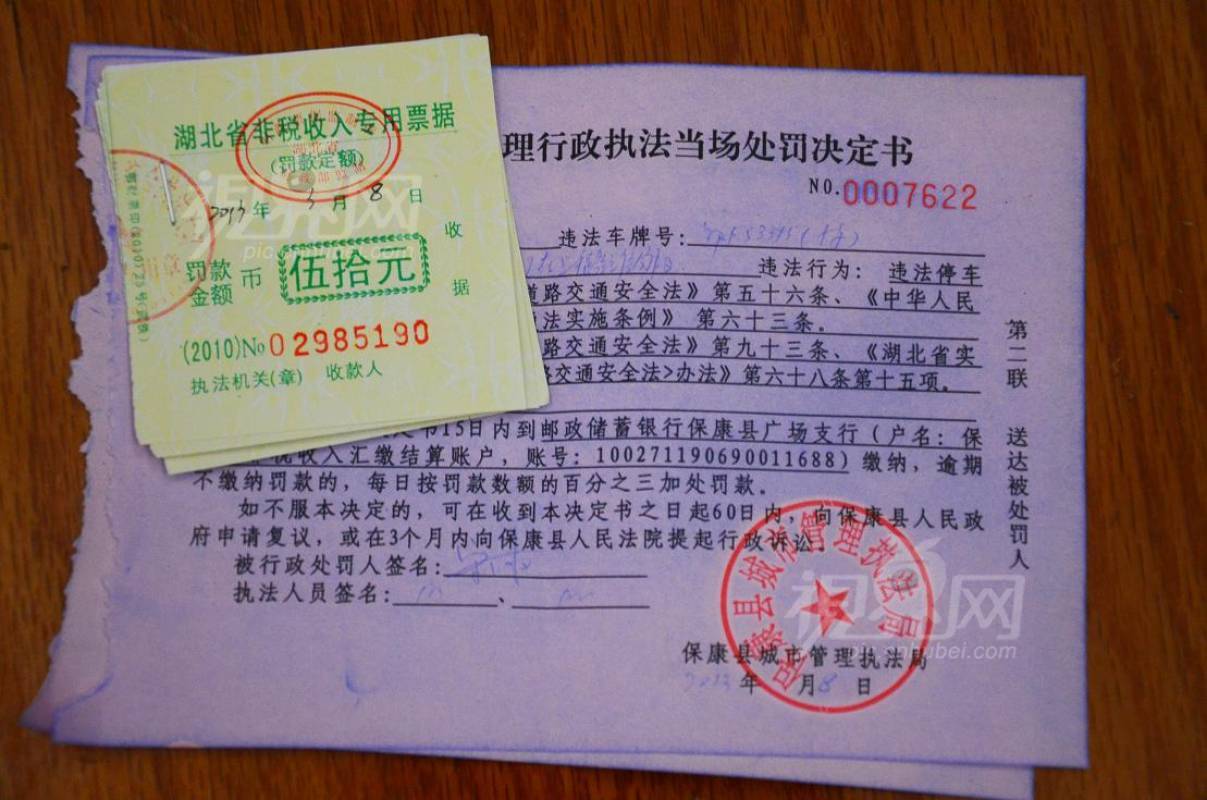 湖北省非税收入专用票据
(罚款定额)
2013年3月8日
罚款金额 币 伍拾元
收据
(2010)No 02985190
执法机关(章) 收款人
理行政执法当场处罚决定书
NO.0007622
违法车牌号:
违法行为: 违法停车
道路交通安全法》第五十六条、《中华人民
法实施条例》 第六十三条。
路交通安全法》第九十三条、《湖北省实
路交通安全法>办法》第六十八条第十五项。
书15日内到邮政储蓄银行保康县广场支行(户名: 保
税收入汇缴结算账户, 账号: 100271190690011688) 缴纳, 逾期
不缴纳罚款的, 每日按罚款数额的百分之三加处罚款。
如不服本决定的, 可在收到本决定书之日起60日内, 向保康县人民政
府申请复议, 或在3个月内向保康县人民法院提起行政诉讼。
被行政处罚人签名:
执法人员签名: 、
保康县城市管理执法局
年 月8日
第二联 送达被处罚人
保康县城市管理执法局
视界网
pic.cnhubei.com
视界网
pic.cnhubei.com